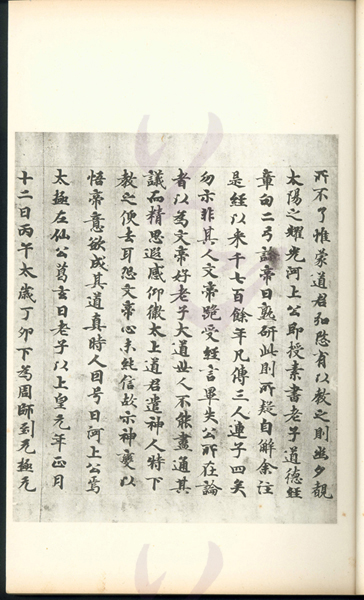 所不了惟蒙道君弘慜有以教之則幽夕覩
太陽之耀光河上公即授素書老子道德經
章句二弓謂帝曰熟研此則所疑自解余注
是經以來千七百餘年凡傳三人連子四矣
勿示非其人文帝跪受經言畢失公所在論
者以為文帝好老子大道世人不能盡通其
議而精思遐感仰徹太上道君遣神人特下
教之便去耳恐文帝心未純信故示神變以
悟帝意欲成其道真時人因号曰河上公焉
太極左仙公葛玄曰老子以上皇元年正月
十二日丙午太歲丁卯下為周師到无極元